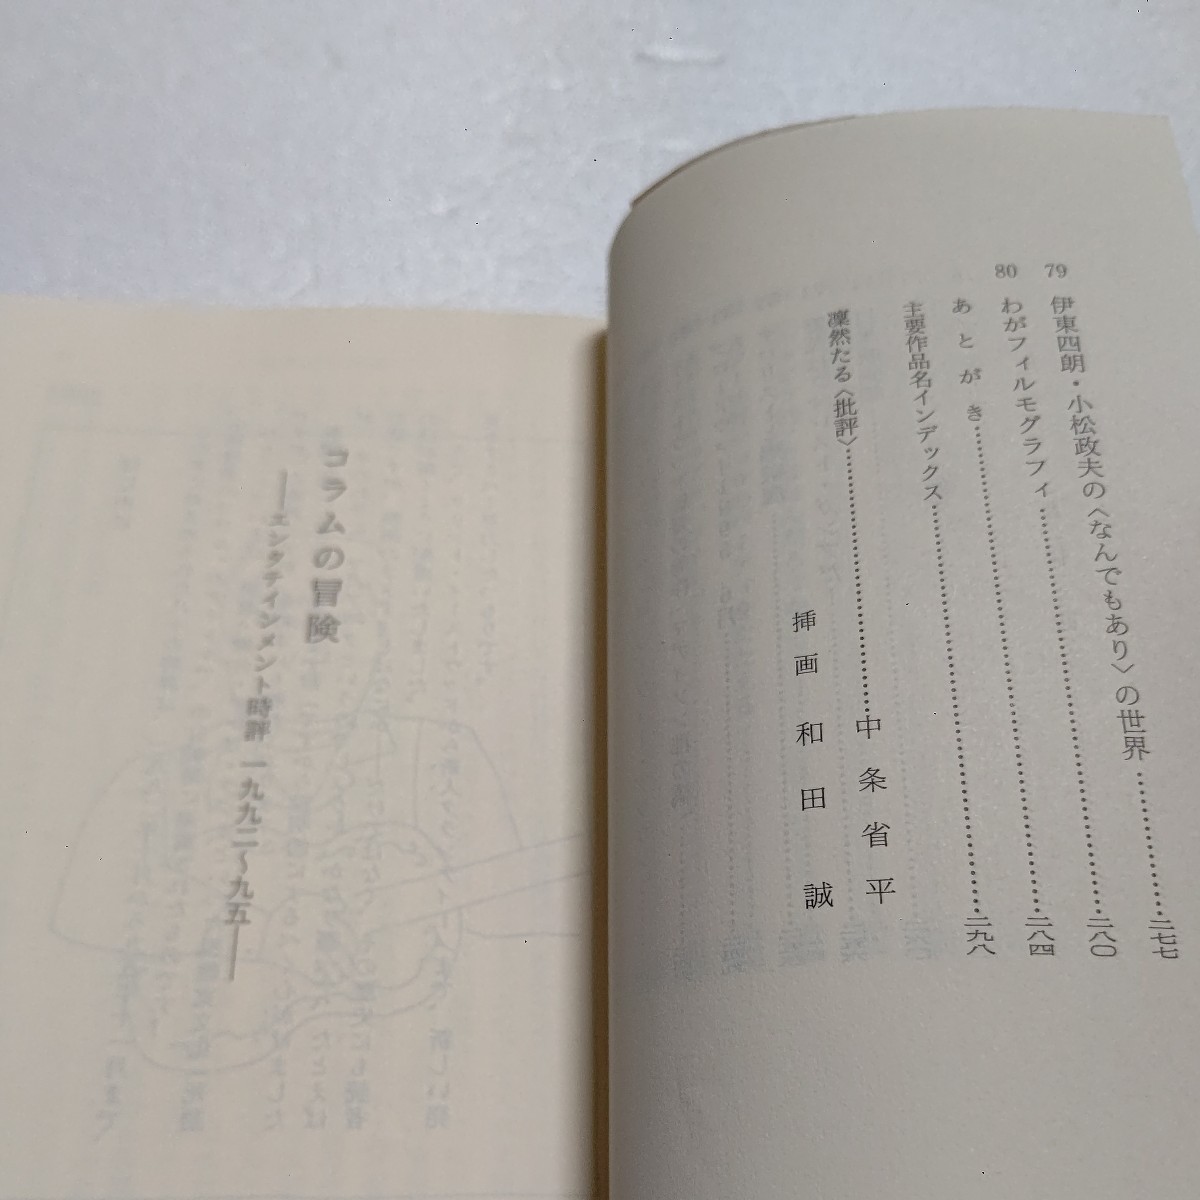 79 伊東四朗・小松政夫の〈なんでもあり〉の世界……二七七
80 わがフィルモグラフィ……二八〇
あとがき……二八四
主要作品名インデックス……二九八
凜然たる〈批評〉……中条省平
挿画 和田 誠
コラムの冒険
――エンタテインメント時評 一九九二〜九五――